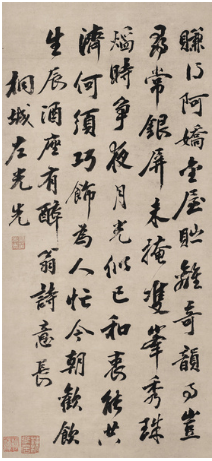 賺得阿嬌金屋貯離奇韻事豈
尋常銀屏未掩雙峯秀珠
時爭夜月光似已和衷能共
濟何須巧飾為人忙今朝歡飲
生辰酒座有醉翁詩意長
桐城左光先